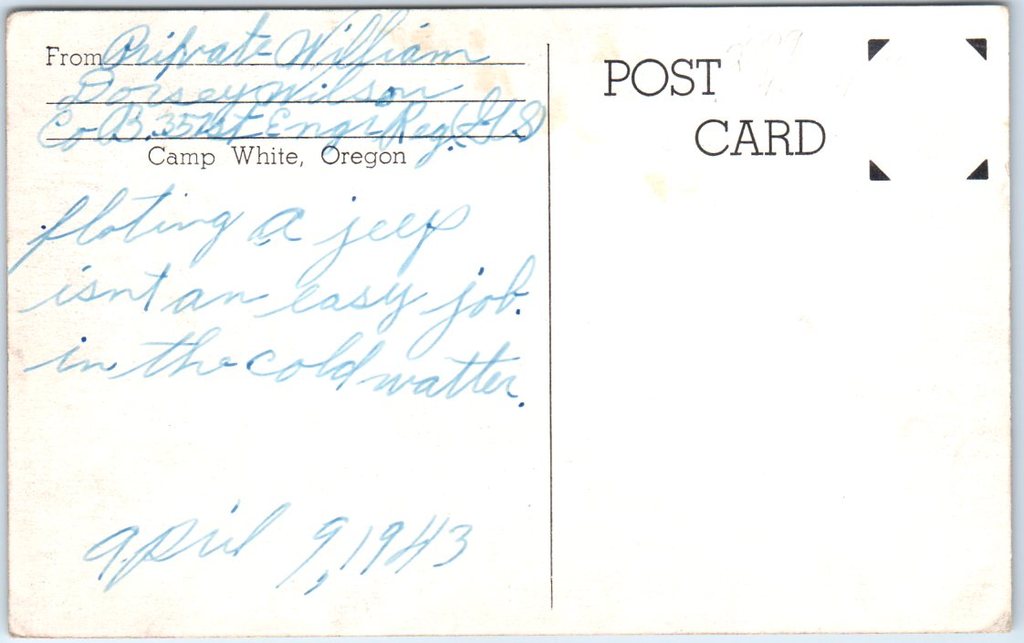 From Private William
Dorsey Wilson
Co B. 351st Engr Reg. (GS)
Camp White, Oregon
floting a jeep
isnt an easy job.
in the cold watter.
April 9, 1943
POST
CARD